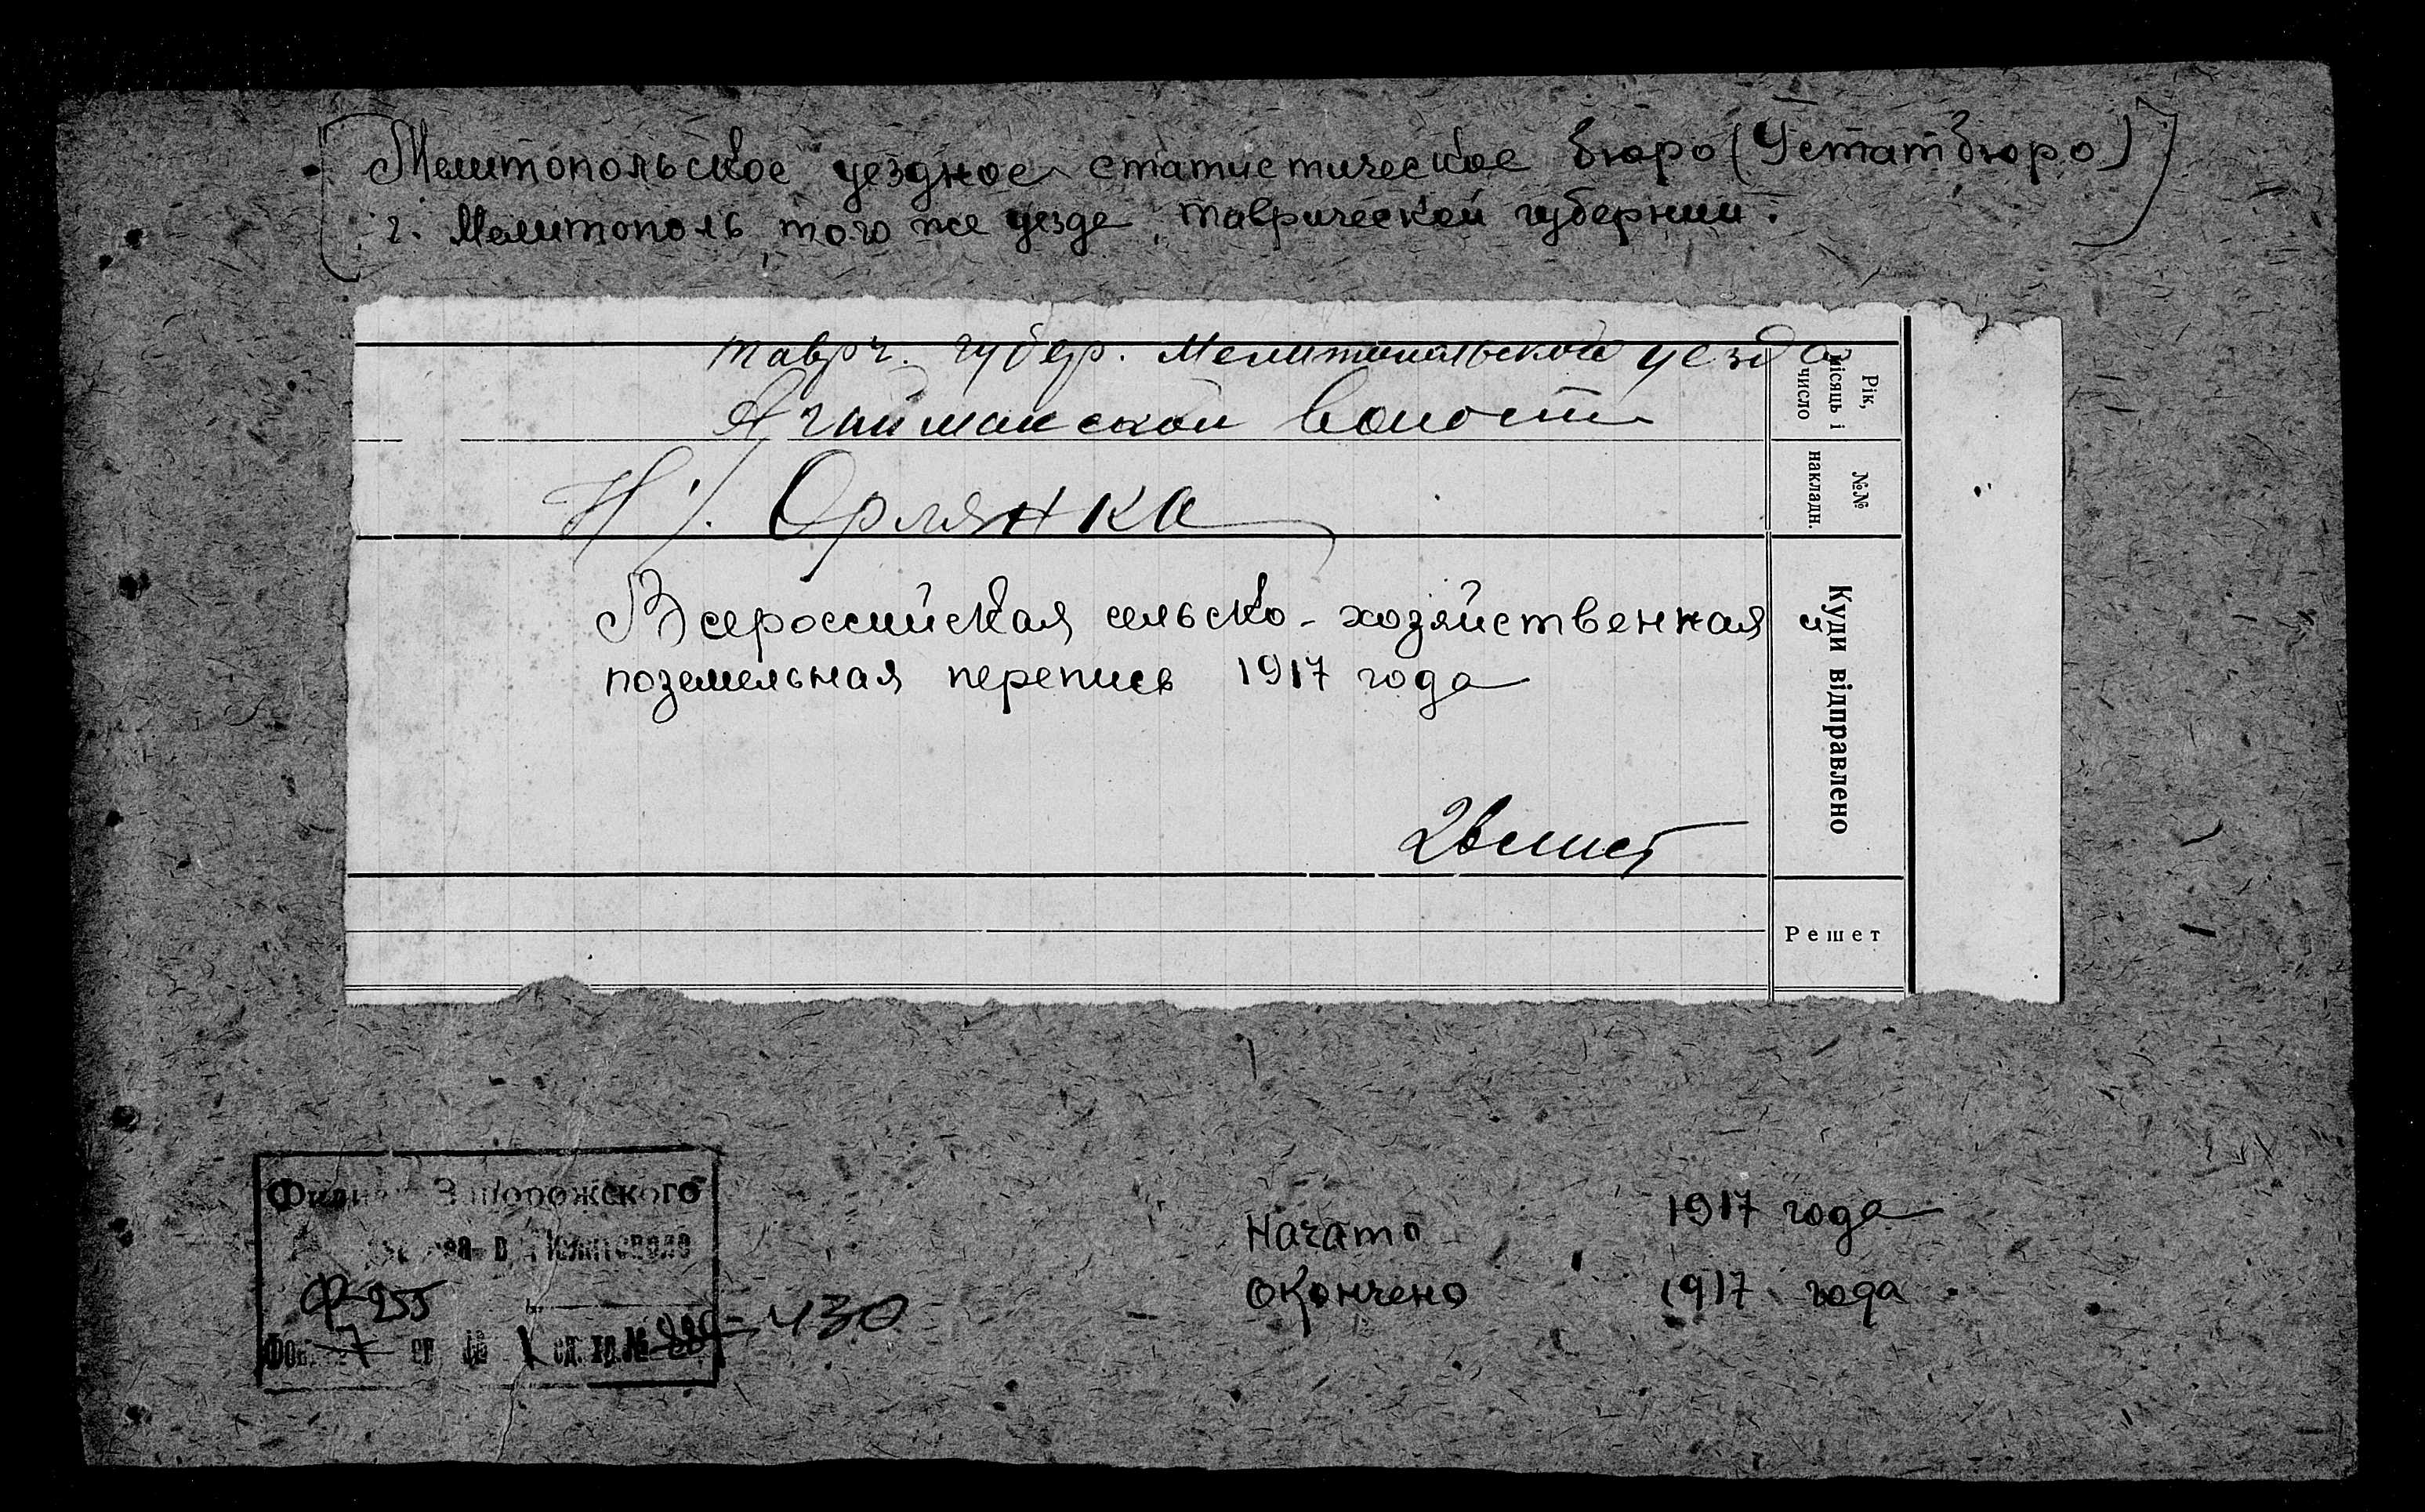 Мелитопольское уездное статистическое бюро (Устатбюро)
г. Мелитополь того же уезда, таврической губернии.
Тавр. губер. Мелитопольского уезда
Агайманской волости
Н/. Орлянка
Всероссийская сельско-хозяйственная и
поземельная перепись 1917 года
лист
Рік, місяць і число
№№ накладн.
Куди відправлено
Решет
Филиал Запорожского
в г. Мелитополе
Ф-255
7 1 ед. хр. № 430
Начато 1917 года
Окончено 1917 года